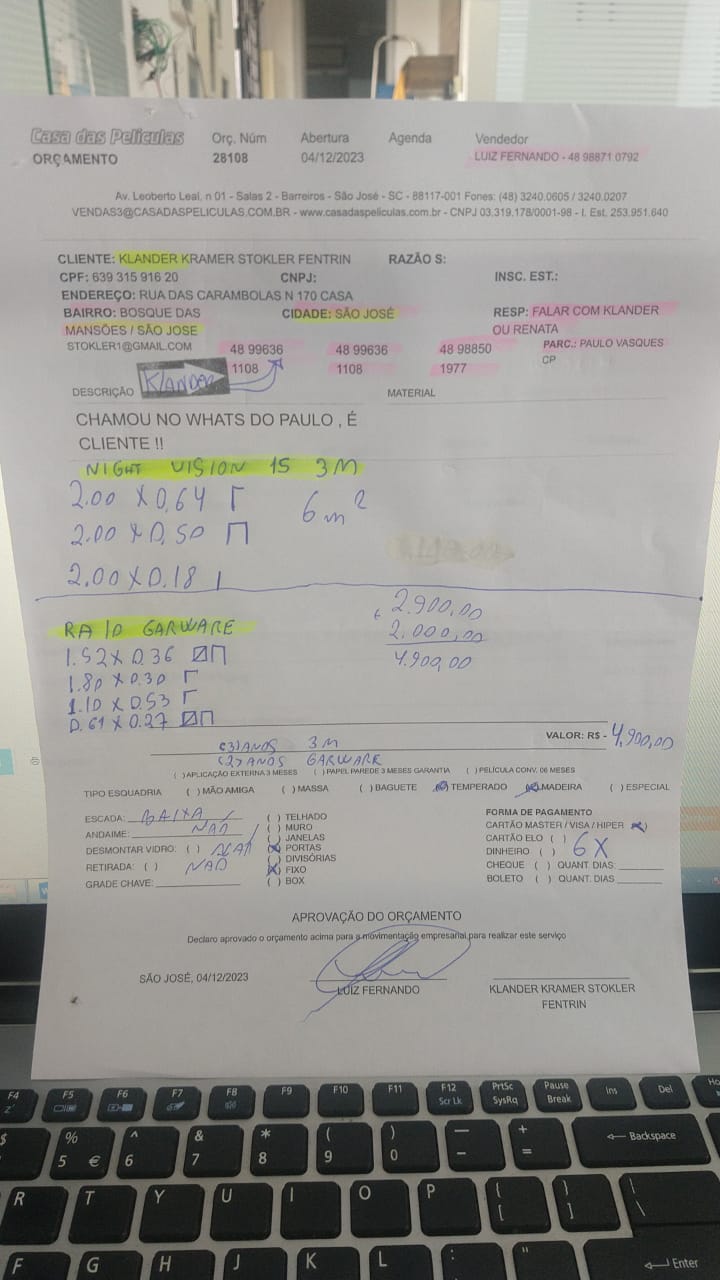 Casa das Películas Orç. Núm Abertura Agenda Vendedor
ORÇAMENTO 28108 04/12/2023 LUIZ FERNANDO - 48 98871.0792
Av. Leoberto Leal, n 01 - Salas 2 - Barreiros - São José - SC - 88117-001 Fones: (48) 3240.0605 / 3240.0207
VENDAS3@CASADASPELICULAS.COM.BR - www.casadaspeliculas.com.br - CNPJ 03.319.178/0001-98 - I. Est. 253.951.640
CLIENTE: KLANDER KRAMER STOKLER FENTRIN RAZÃO S:
CPF: 639 315 916 20 CNPJ: INSC. EST.:
ENDEREÇO: RUA DAS CARAMBOLAS N 170 CASA
BAIRRO: BOSQUE DAS CIDADE: SÃO JOSÉ RESP: FALAR COM KLANDER
MANSÕES / SÃO JOSE OU RENATA
STOKLER1@GMAIL.COM 48 99636 48 99636 48 98850 PARC.: PAULO VASQUES
1108 1108 1977 CP
KLANDER
DESCRIÇÃO MATERIAL
CHAMOU NO WHATS DO PAULO , É
CLIENTE !!
NIGHT VISION 15 3M
2.00 X 0,64 6 m²
2.00 X 0,50
2.00 X 0.18
2.900,00
RA 10 GARWARE 2.000,00
1.52 X 0.36 4.900,00
1.80 X 0.30
1.10 X 0.53
0.61 X 0.27
VALOR: R$ - 4,900,00
(3) ANOS 3M
(2) ANOS GARWARE
( ) APLICAÇÃO EXTERNA 3 MESES ( ) PAPEL PAREDE 3 MESES GARANTIA ( ) PELÍCULA CONV. 06 MESES
TIPO ESQUADRIA ( ) MÃO AMIGA ( ) MASSA ( ) BAGUETE (X) TEMPERADO (X) MADEIRA ( ) ESPECIAL
ESCADA: BAIXA ( ) TELHADO FORMA DE PAGAMENTO
ANDAIME: NÃO ( ) MURO CARTÃO MASTER / VISA / HIPER (X)
( ) JANELAS CARTÃO ELO ( )
DESMONTAR VIDRO: ( ) NÃO (X) PORTAS DINHEIRO ( ) 6X
RETIRADA: ( ) NÃO ( ) DIVISÓRIAS CHEQUE ( ) QUANT. DIAS:
(X) FIXO
GRADE CHAVE: ( ) BOX BOLETO ( ) QUANT. DIAS
APROVAÇÃO DO ORÇAMENTO
Declaro aprovado o orçamento acima para a movimentação empresarial para realizar este serviço
SÃO JOSÉ, 04/12/2023
LUIZ FERNANDO KLANDER KRAMER STOKLER
FENTRIN
F4 F5 F6 F7 F8 F9 F10 F11 F12 PrtSc Pause Ins Del
Scr Lk SysRq Break
$ % ^ & * ( ) — + Backspace
5 € 6 7 8 9 0 - =
R T Y U I O P { } |
[ ] \
F G H J K L : " Enter